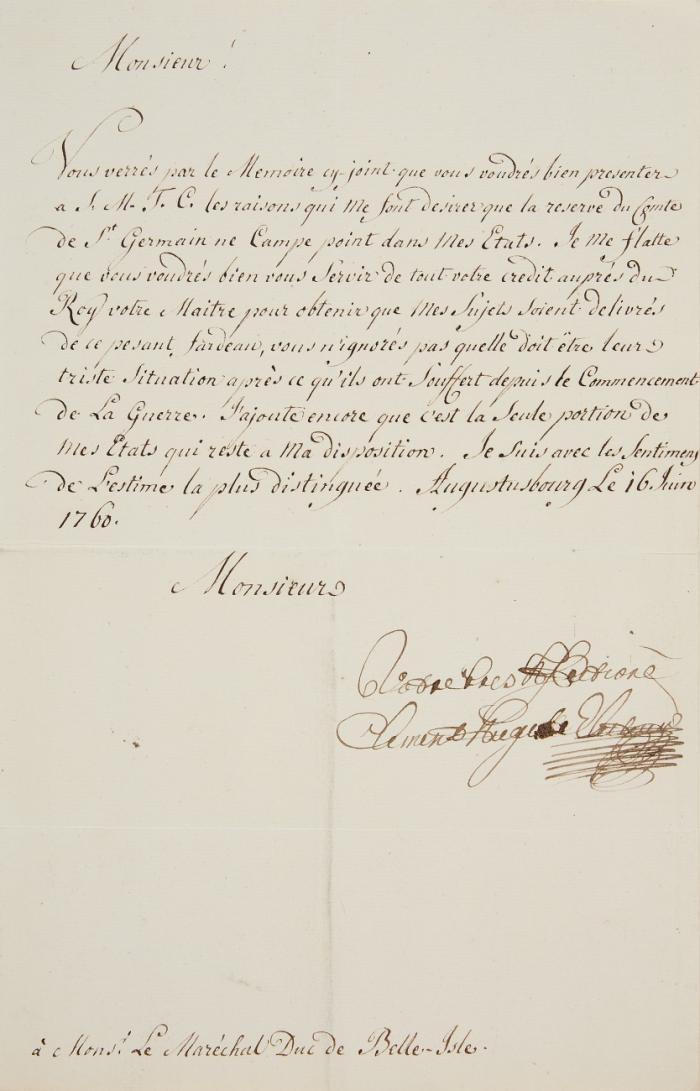 Monsieur!
Vous verrés par le Memoire cy-joint que vous voudrés bien presenter
a S. M. T. C. les raisons qui me font desirer que la reserve du Comte
de St Germain ne Campe point dans mes Etats. Je me flatte
que vous voudrés bien vous Servir de tout votre credit auprés du
Roy votre Maitre pour obtenir que mes Sujets soient delivrés
de ce pesant fardeau, vous n'ignorés pas quelle doit être leur
triste Situation après ce qu'ils ont Souffert depuis le Commencement
de La Guerre. J'ajoute encore que c'est la Seule portion de
mes Etats qui reste a ma disposition. Je Suis avec les Sentimens
de L'estime la plus distinguée. Augustusbourg Le 16 Juin
1760.
Monsieur
Votre tres Affectioné
Clement Auguste Electeur
à Monsr Le Maréchal Duc de Belle-Isle.